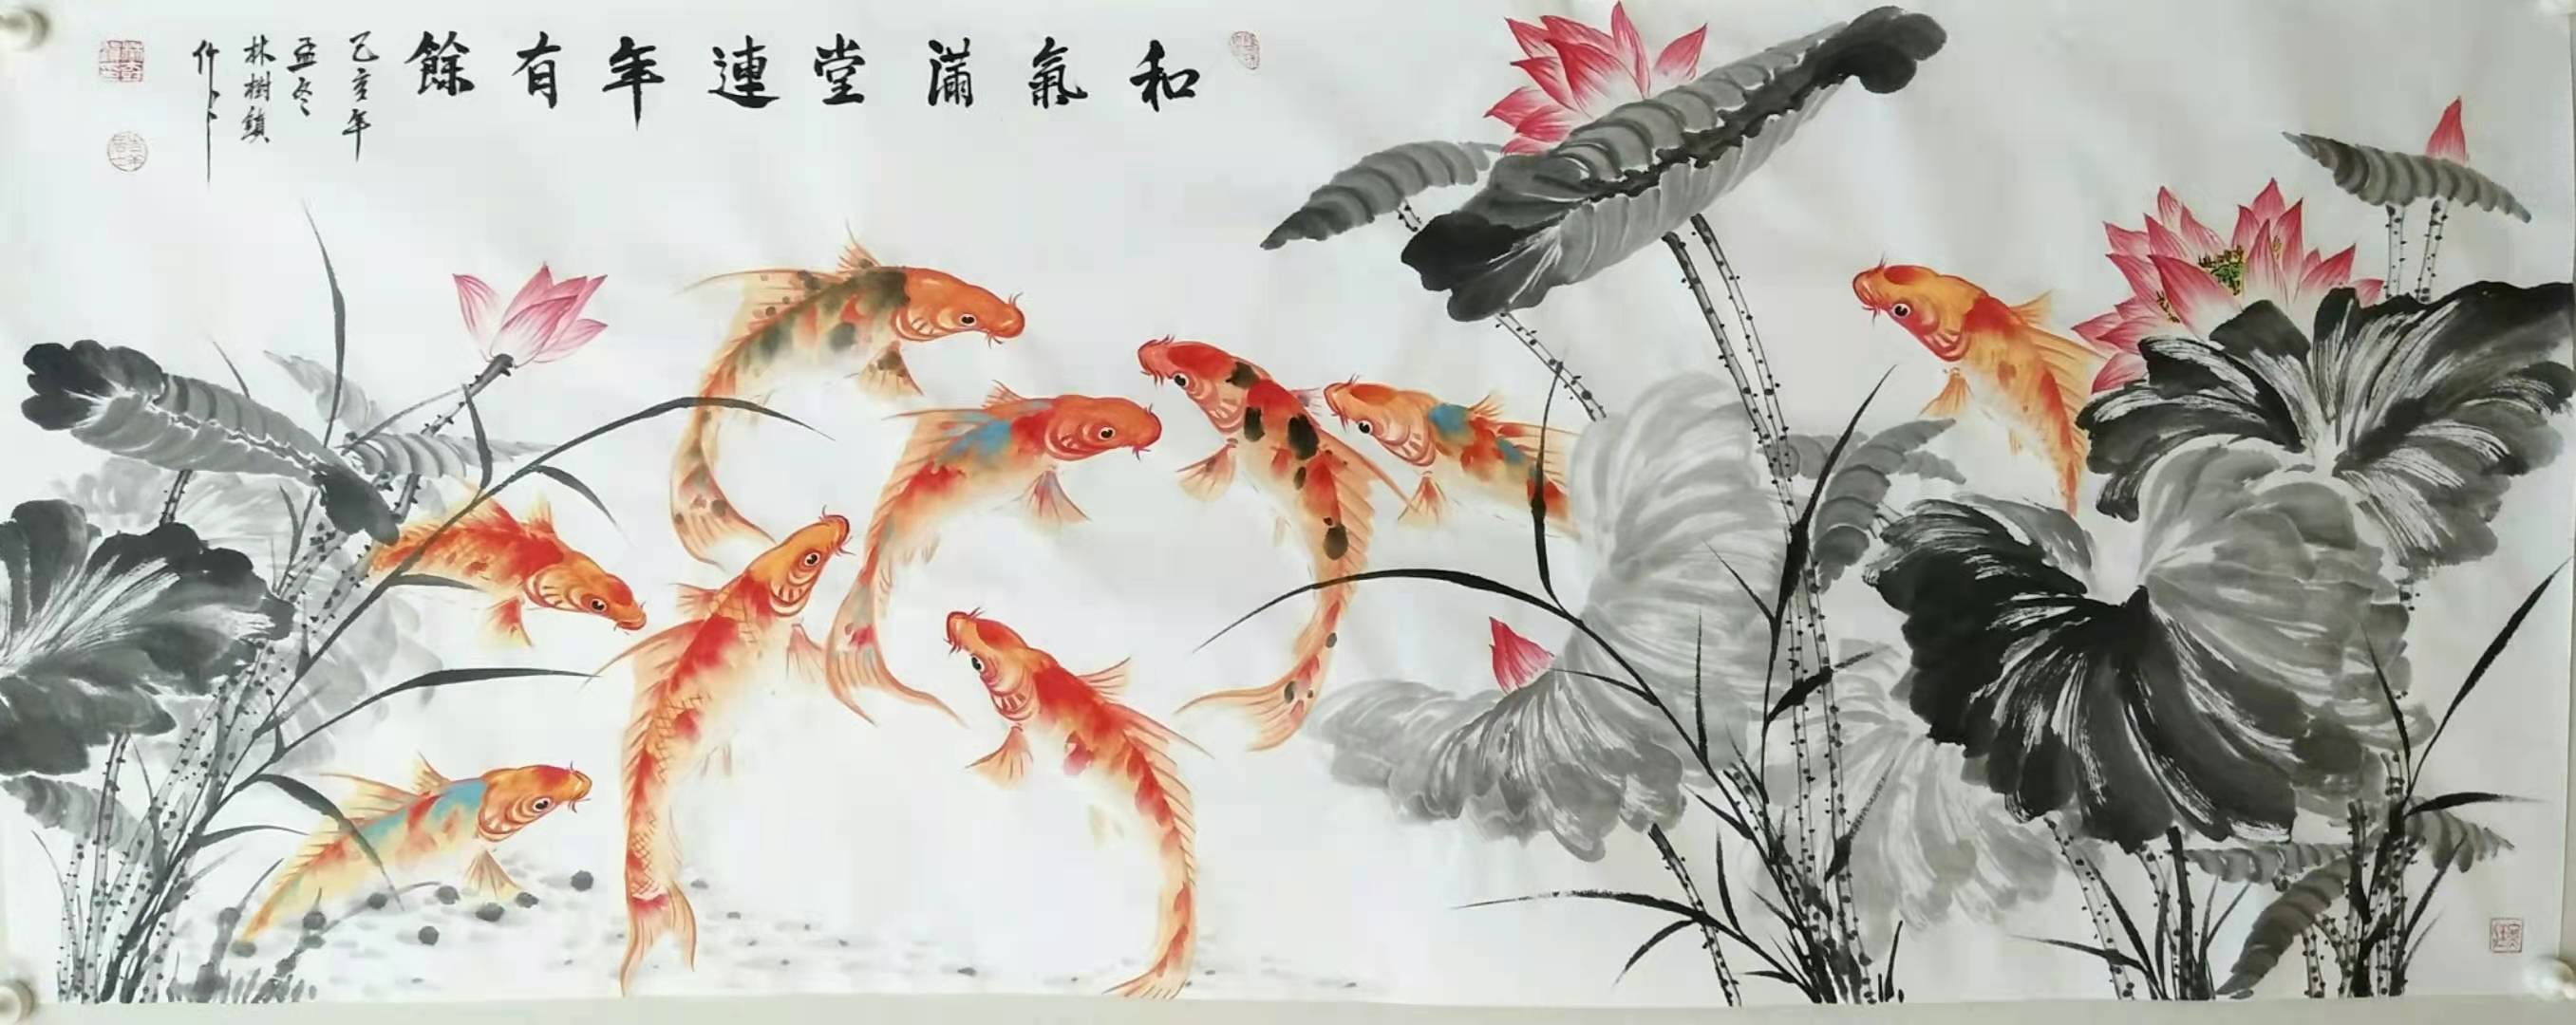 和氣滿堂連年有餘
乙亥年
孟冬
林樹鎮
作